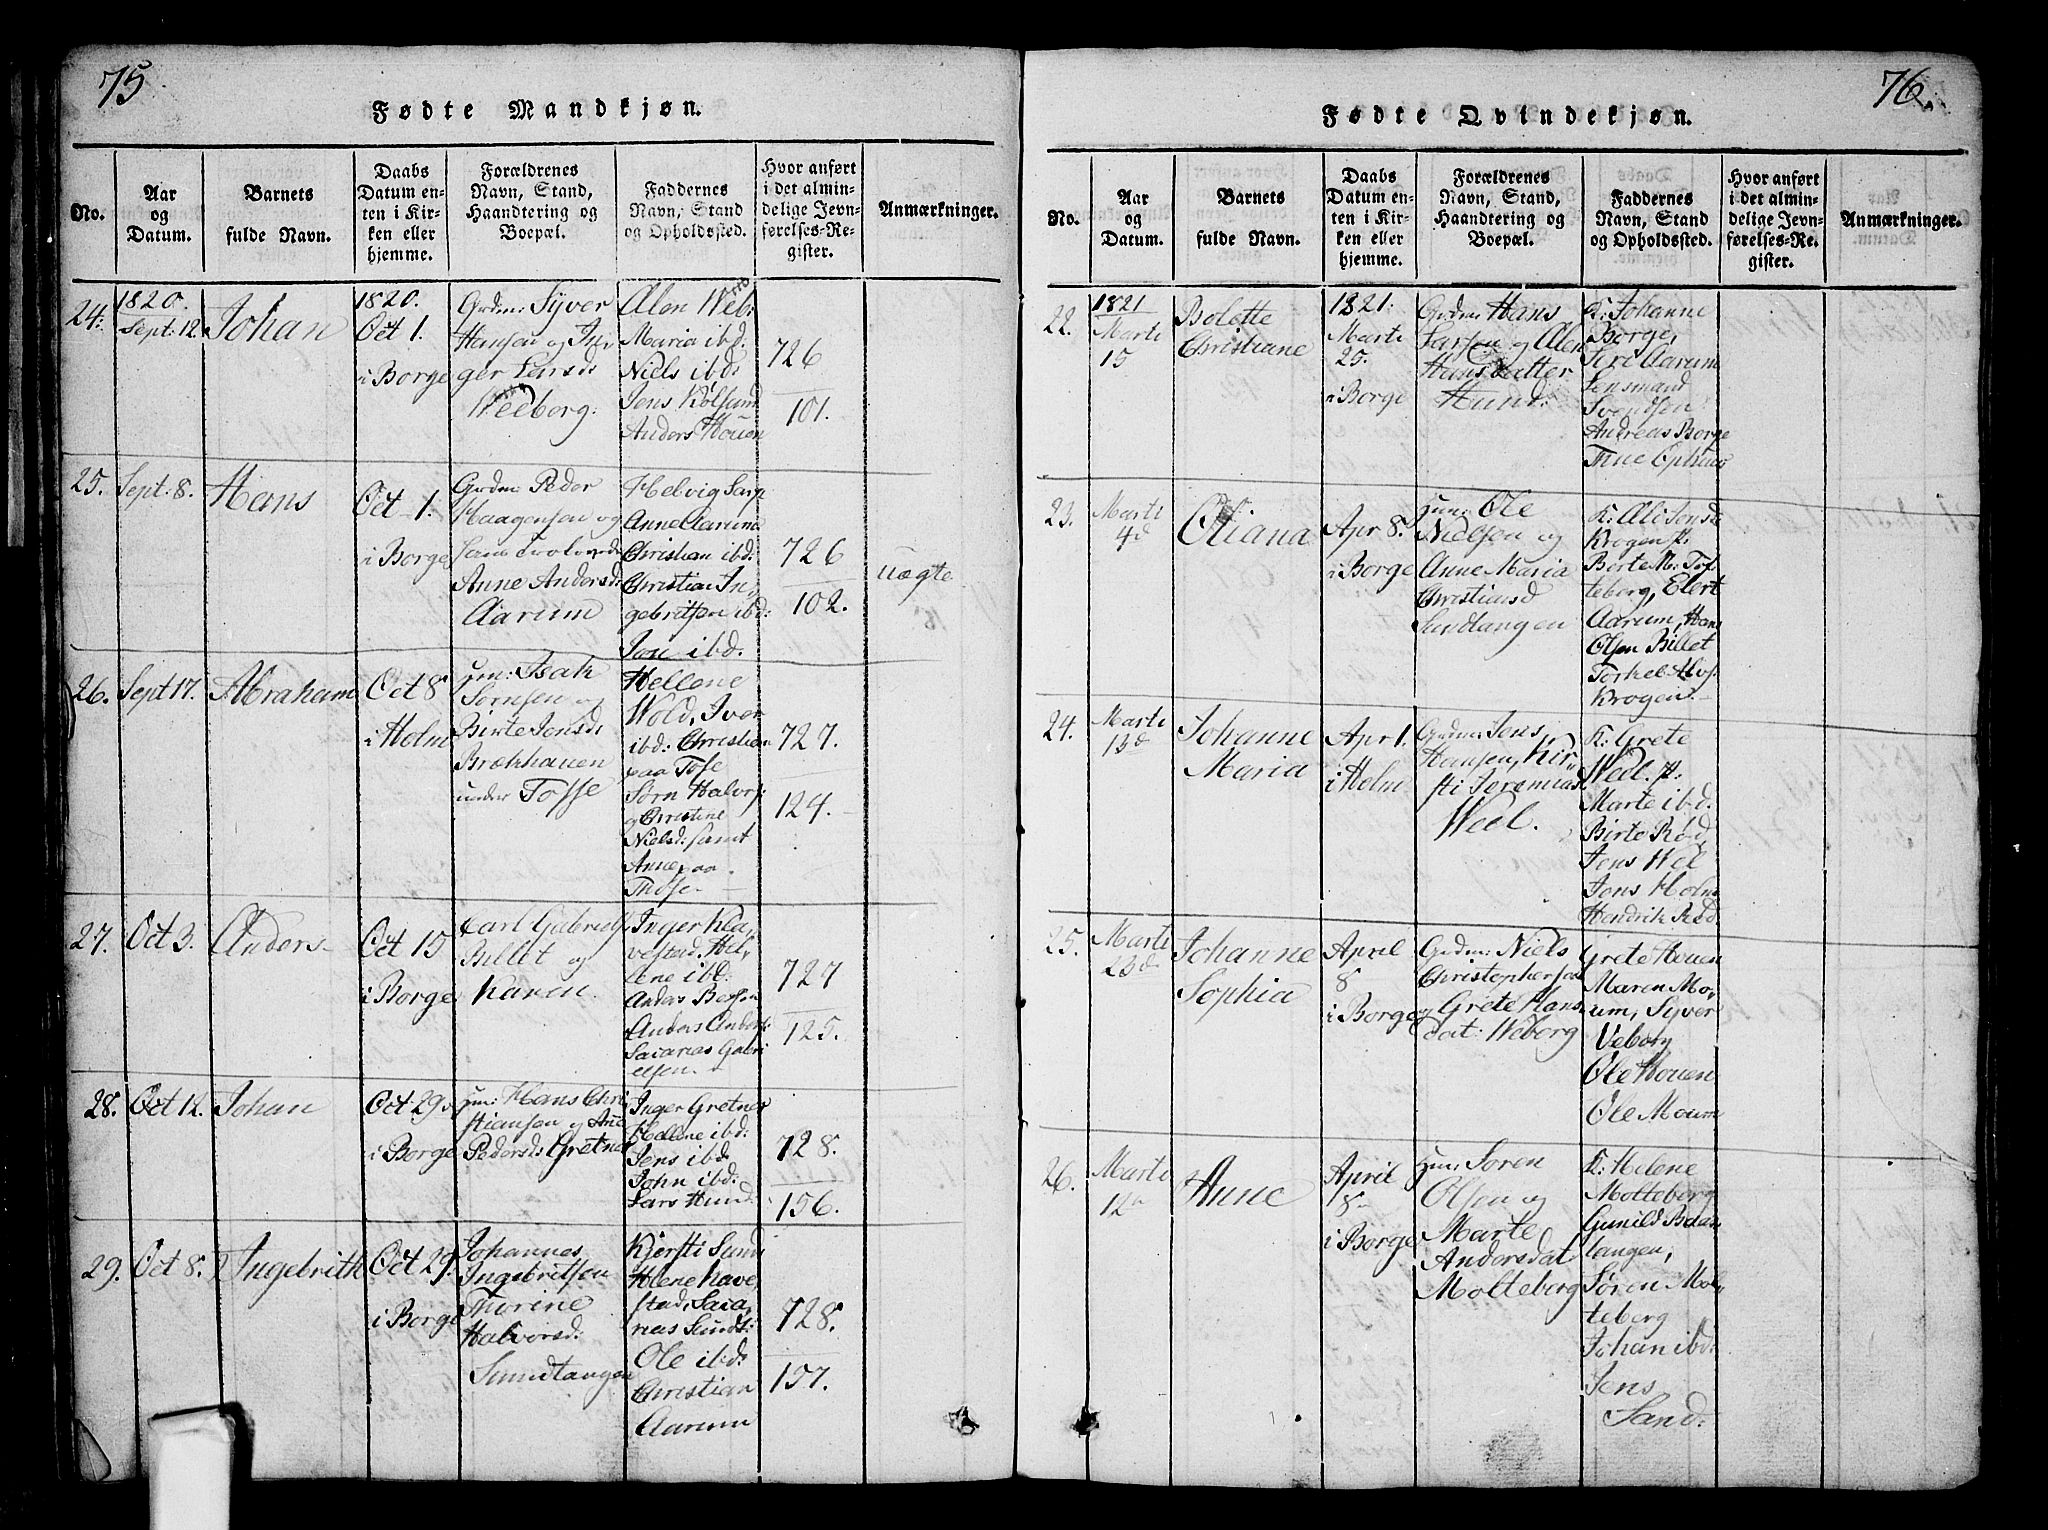 75
Fødte Mandkjøn.
No.
Aar
og
Datum.
Barnets
fulde Navn.
Daabs
Datum en-
ten i Kir-
ken eller
hjemme.
Forældrenes
Navn, Stand,
Haandtering og
Boepæl.
Faddernes
Navn, Stand
og Opholdssted.
Hvor anført
i det almin-
delige Jevn-
førelses-Re-
gister.
Anmærkninger.
24.
1820.
Sept: 12.
Johan
1820.
Oct 1.
i Borge
Grdm: Syver
Hansen og In-
ger Larsd:
Weeborg:
Alen Web:
Maria ibd.
Niels ibd:
Jens Kölsund
Anders Houen
726
101.
25.
Sept: 8.
Hans
Oct 1.
i Borge
Grdm: Peder
Haagensen og
Anne Andersd:
Aarum
Helvig Sarp
Anne Aarum
Christian ibd:
Christian In-
gebritsen ibd:
Jon ibd.
726
102.
uægte
26.
Sept 17.
Abraham
Oct 8
i Holm
Hm: Isak
Sørnsen og
Birte Jensd:
Brækhauen
under Tosse
Hellene
Wold, Iver
ibd: Christian
paa Tose
Sørn Halvors:
og Christine
Nielsd: samt
Anne paa
Those
727.
124.
27.
Oct 3.
Anders
Oct 15
i Borge
Carl Gabriels:
Billet og
Karen.
Inger Kla-
vestad, Hel-
ene ibd:
Anders Bersen
Anders Anders:
Sacarias Gabri
elsen
727
125.
28.
Oct 12.
Johan
Oct 29
i Borge
Hm: Hans Chri-
stiansen og Anne
Pedersd: Gretnes
Inger Gretnes
Helene ibd:
Jens ibd.
John ibd:
Lars Hund:
728.
156.
29.
Oct 8.
Ingebrith
Oct 29.
i Borge
Johannes
Ingebritsen
Thorine
Halvorsd:
Sundtangen
Kjersti Sund
Helene Have-
stad, Saca-
rias Sundt:
Ole ibd:
Christian
Aarum
728.
157.
76.
Fødte Qvindekjøn.
No.
Aar
og
Datum.
Barnets
fulde Navn.
Daabs
Datum en-
ten i Kir-
ken eller
hjemme.
Forældrenes
Navn, Stand,
Haandtering og
Boepæl.
Faddernes
Navn, Stand
og Opholdssted.
Hvor anført
i det almin-
delige Jevn-
førelses-Re-
gister.
Anmærkninger.
22.
1821
Marti
15
Bolette
Christiane
1821.
Marti
25.
i Borge
Grdm: Hans
Larsen og Alen
Hansdatter
Hund:
K: Johanne
Borge,
Siri Aarum
Lensmand
Svendsen
Andreas Borge
23.
Marti
4d
Oliana
Apr 8.
i Borge
Hm: Ole
Nielsen og
Anne Maria
Christiansd
Sundtangen
K: Ale Jensd
Krogen P:
Birte M: Tof-
teborg, Elert
Aarum, Hans
Olsen Billet
Torkel Alvs:
Krogen.
24.
Marti
13d
Johanne
Maria
Apr 1.
i Holm
Grdm: Jens
Hansen, Kir-
sti Jeremiasd
Weel.
K: Grete
Weel. P:
Marte ibd.
Birte Rød,
Jens Wel
Jens Holm
Hendrik Rød
25.
Marti
23d
Johanne
Sophia
April
8
i Borge
Grdm: Niels
Christophersen
og Grete Hans
dat: Weborg
Grete Houen
Maren Mo-
um, Syver
Veborg
Ole Houen
Ole Moum
26.
Marti
12
Anne
April
8
i Borge
Hm: Soren
Olsen og
Marte
Andersdat
Molteberg
K: Helene
Molteberg
Gunild Baas
tangen,
Søren Mol-
teberg
Johan ibd:
Jens
Sand: